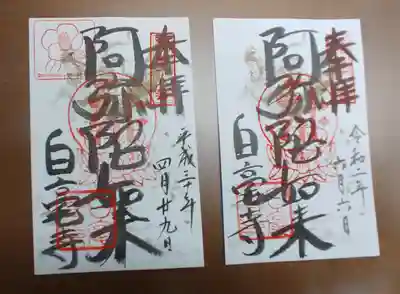 奉拝
阿弥陀如来
平成三十年
四月廿九日
白亳寺
奉拝
阿弥陀如来
令和二年
六月六日
白亳寺